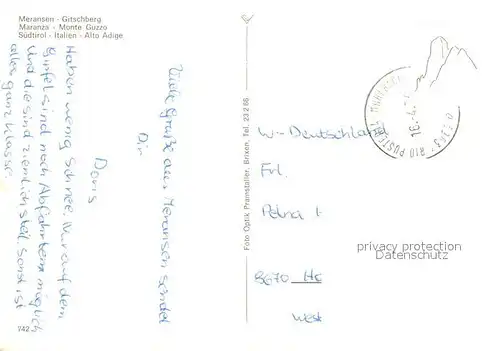 Meransen - Gitschberg
Maranza - Monte Guzzo
Südtirol - Italien - Alto Adige
Viele Grüße aus Meransen sendet
Dir
Doris
Haben wenig Schnee. Nur auf dem
Gipfel sind noch Abfahrten möglich
und die sind ziemlich steil. Sonst ist
alles ganz klasse.
Foto Optik Pramstaller, Brixen, Tel. 23 2 66
W-Deutschland
Frl.
Petra
8670 Ho
West
privacy protection
Datenschutz
RIO PUSTERIA
742